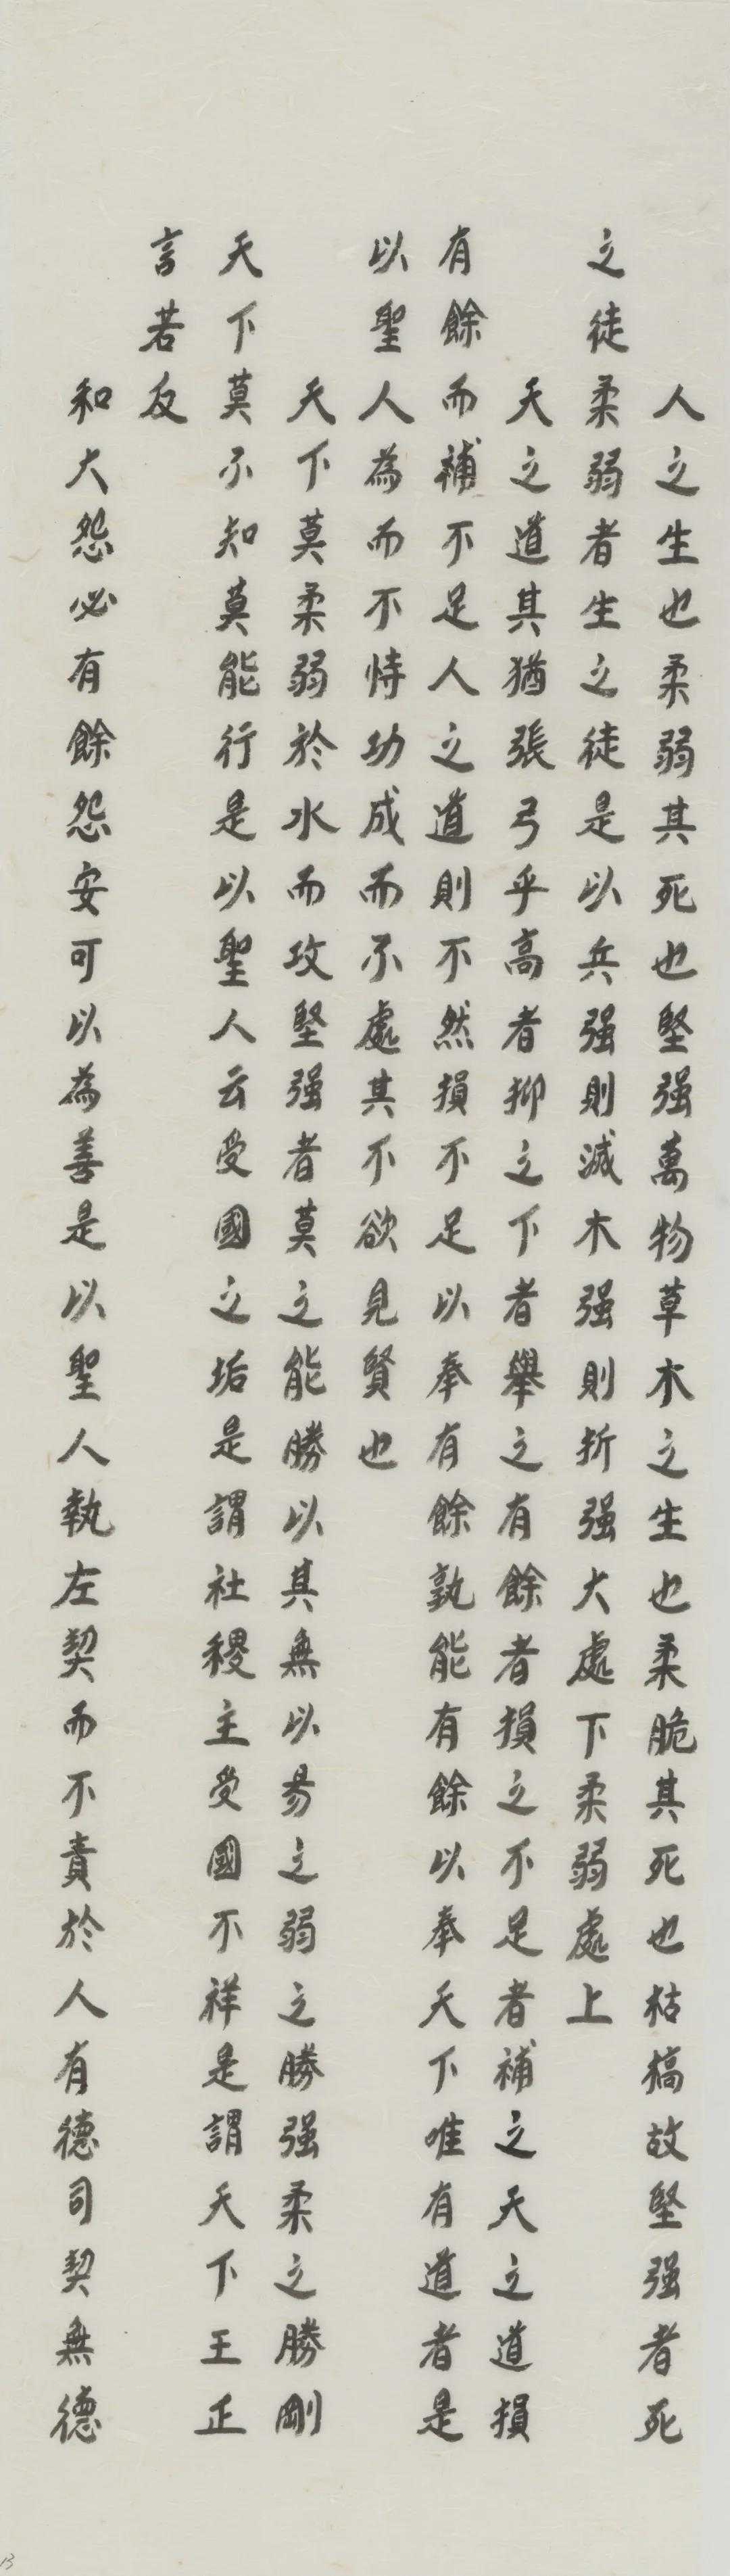 人之生也柔弱其死也堅强萬物草木之生也柔脆其死也枯槁故堅强者死
之徒柔弱者生之徒是以兵强則滅木强則折强大處下柔弱處上
天之道其猶張弓乎高者抑之下者舉之有餘者損之不足者補之天之道損
有餘而補不足人之道則不然損不足以奉有餘孰能有餘以奉天下唯有道者是
以聖人為而不恃功成而不處其不欲見賢也
天下莫柔弱於水而攻堅强者莫之能勝以其無以易之弱之勝强柔之勝剛
天下莫不知莫能行是以聖人云受國之垢是謂社稷主受國不祥是謂天下王正
言若反
和大怨必有餘怨安可以為善是以聖人執左契而不責於人有德司契無德
13